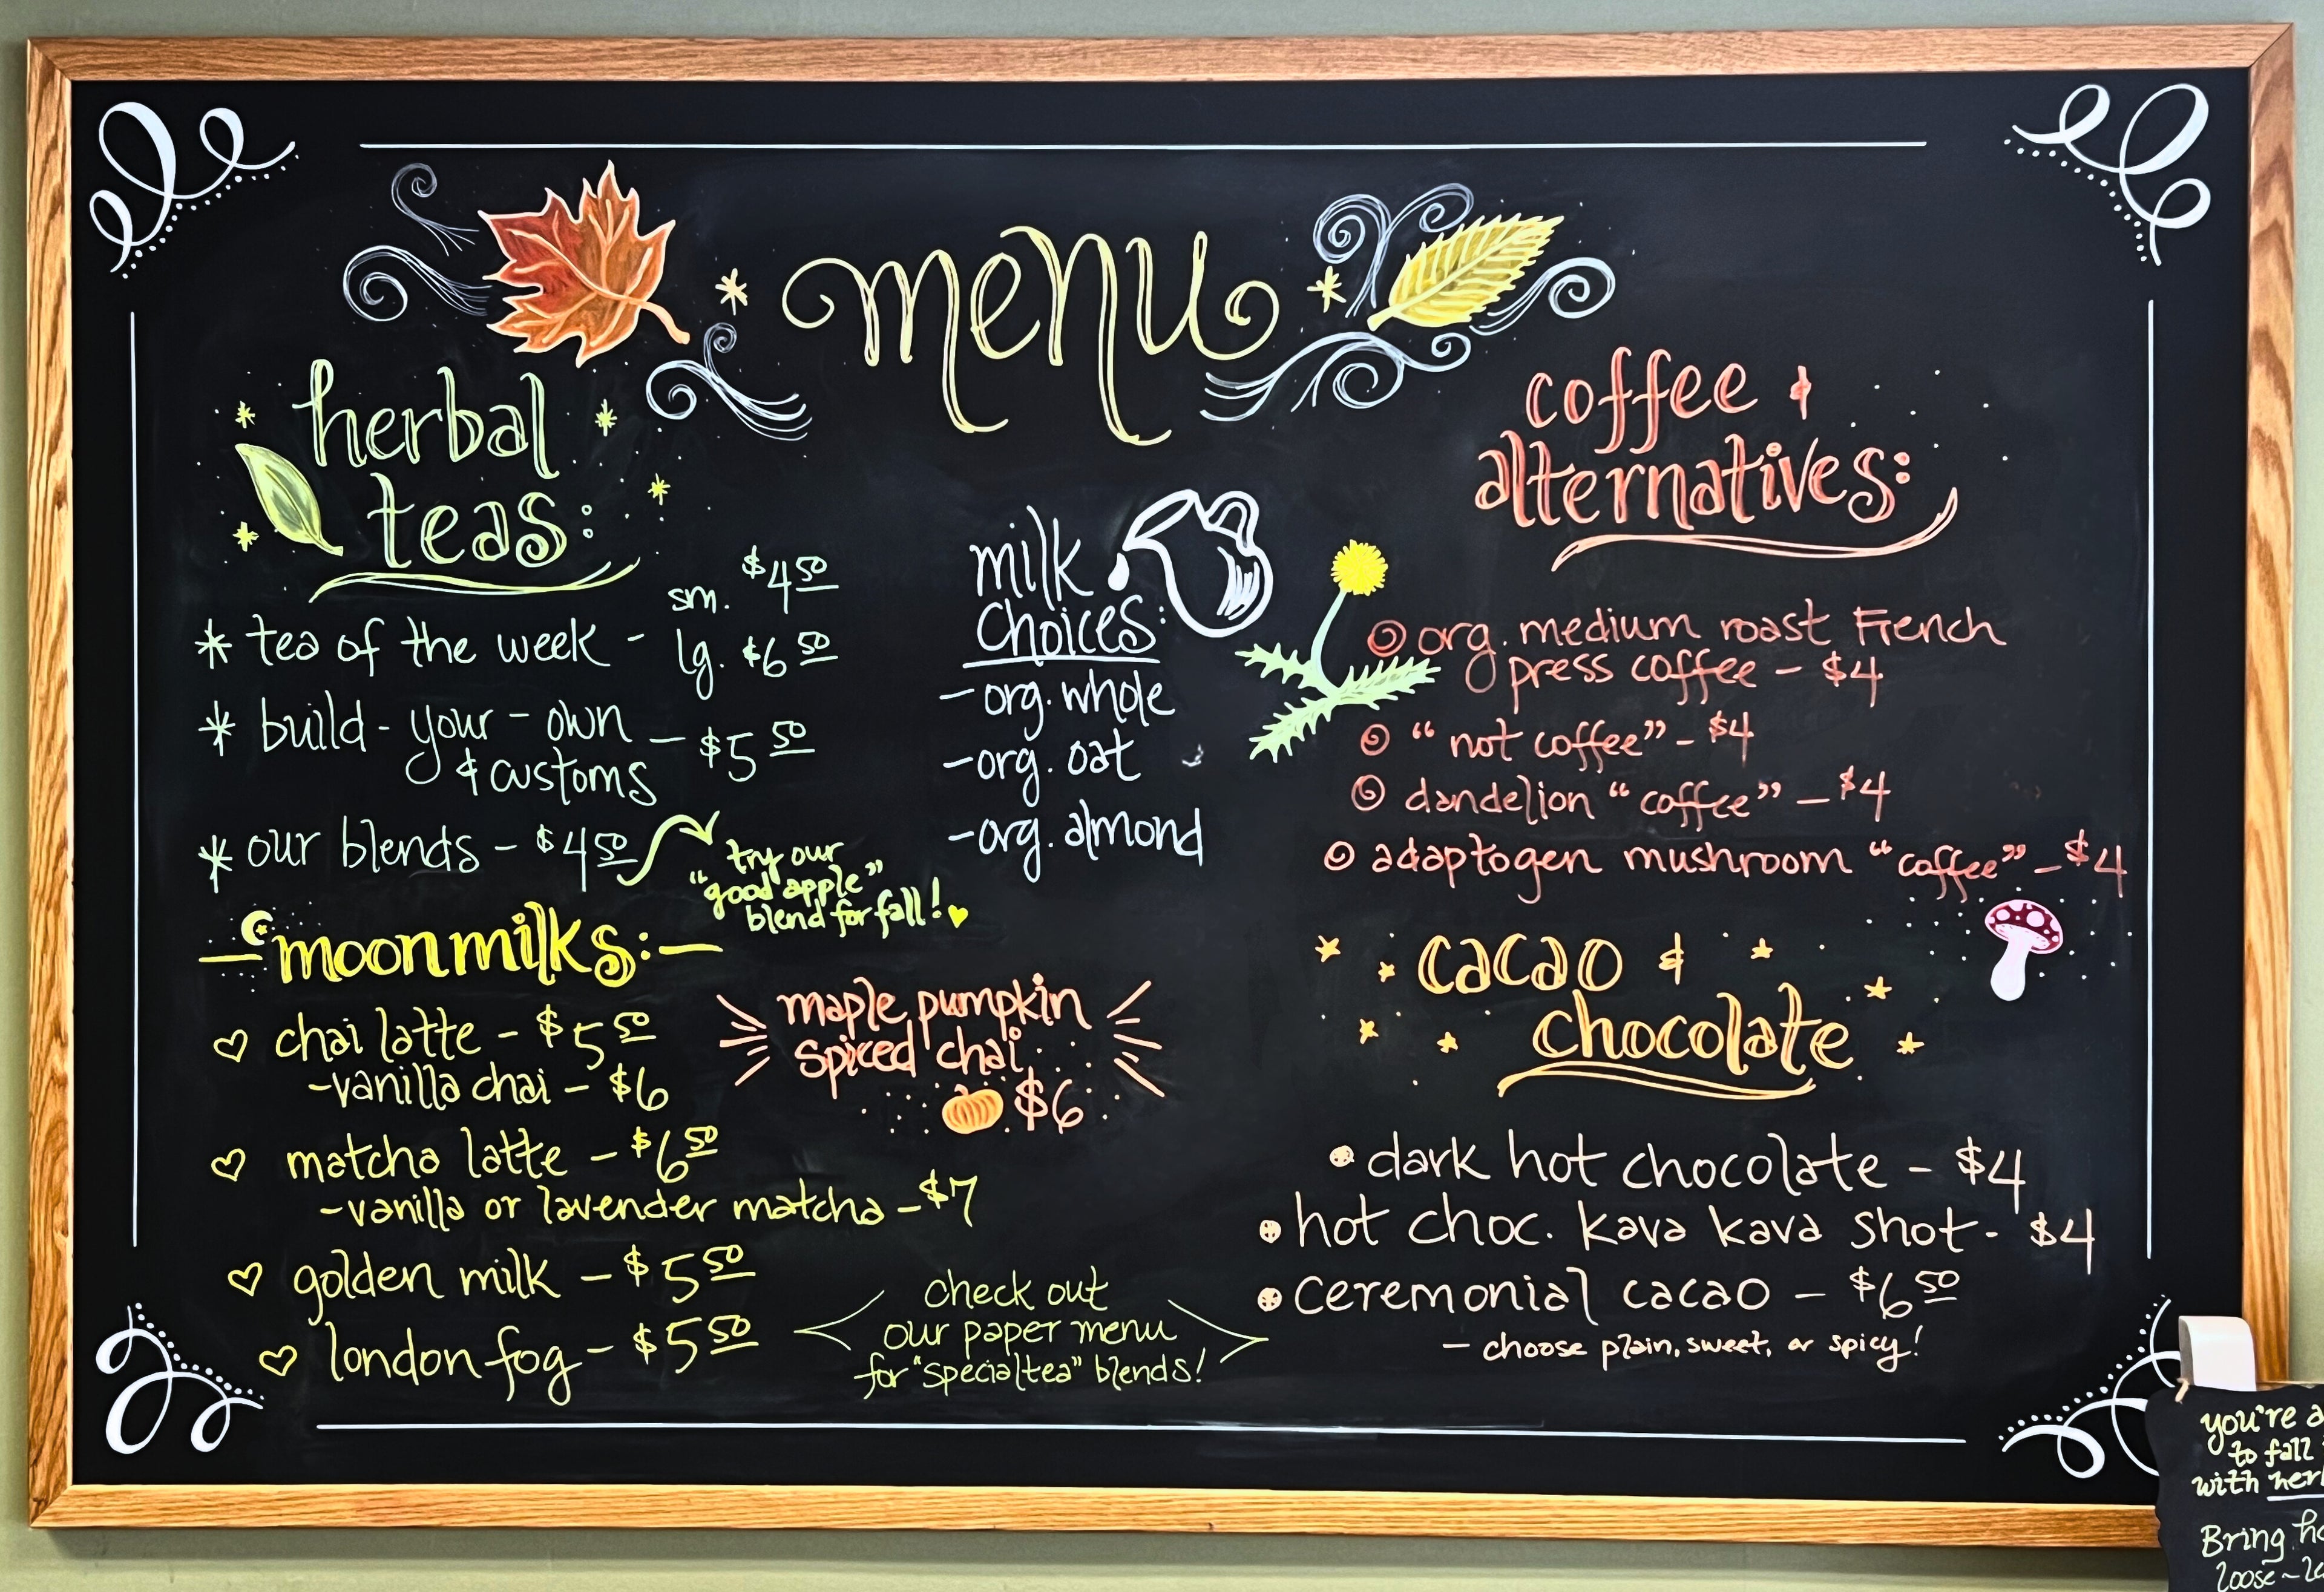 menu
herbal
teas:
* tea of the week - sm. $4 50
lg. $6 50
* build-your-own
& customs - $5 50
* our blends - $4 50
try our
"good apple"
blend for fall!
moon milks:
chai latte - $5 50
- vanilla chai - $6
matcha latte - $6 50
- vanilla or lavender matcha - $7
golden milk - $5 50
london fog - $5 50
milk
choices:
- org. whole
- org. oat
- org. almond
maple pumpkin
spiced chai
$6
check out
our paper menu
for "specialtea" blends!
coffee &
alternatives:
org. medium roast French
press coffee - $4
"not coffee" - $4
dandelion "coffee" - $4
adaptogen mushroom "coffee" - $4
cacao &
chocolate
• dark hot chocolate - $4
• hot choc. kava kava shot - $4
• ceremonial cacao - $6 50
- choose plain, sweet, or spicy!
you're
to fall
with
Bring
loose